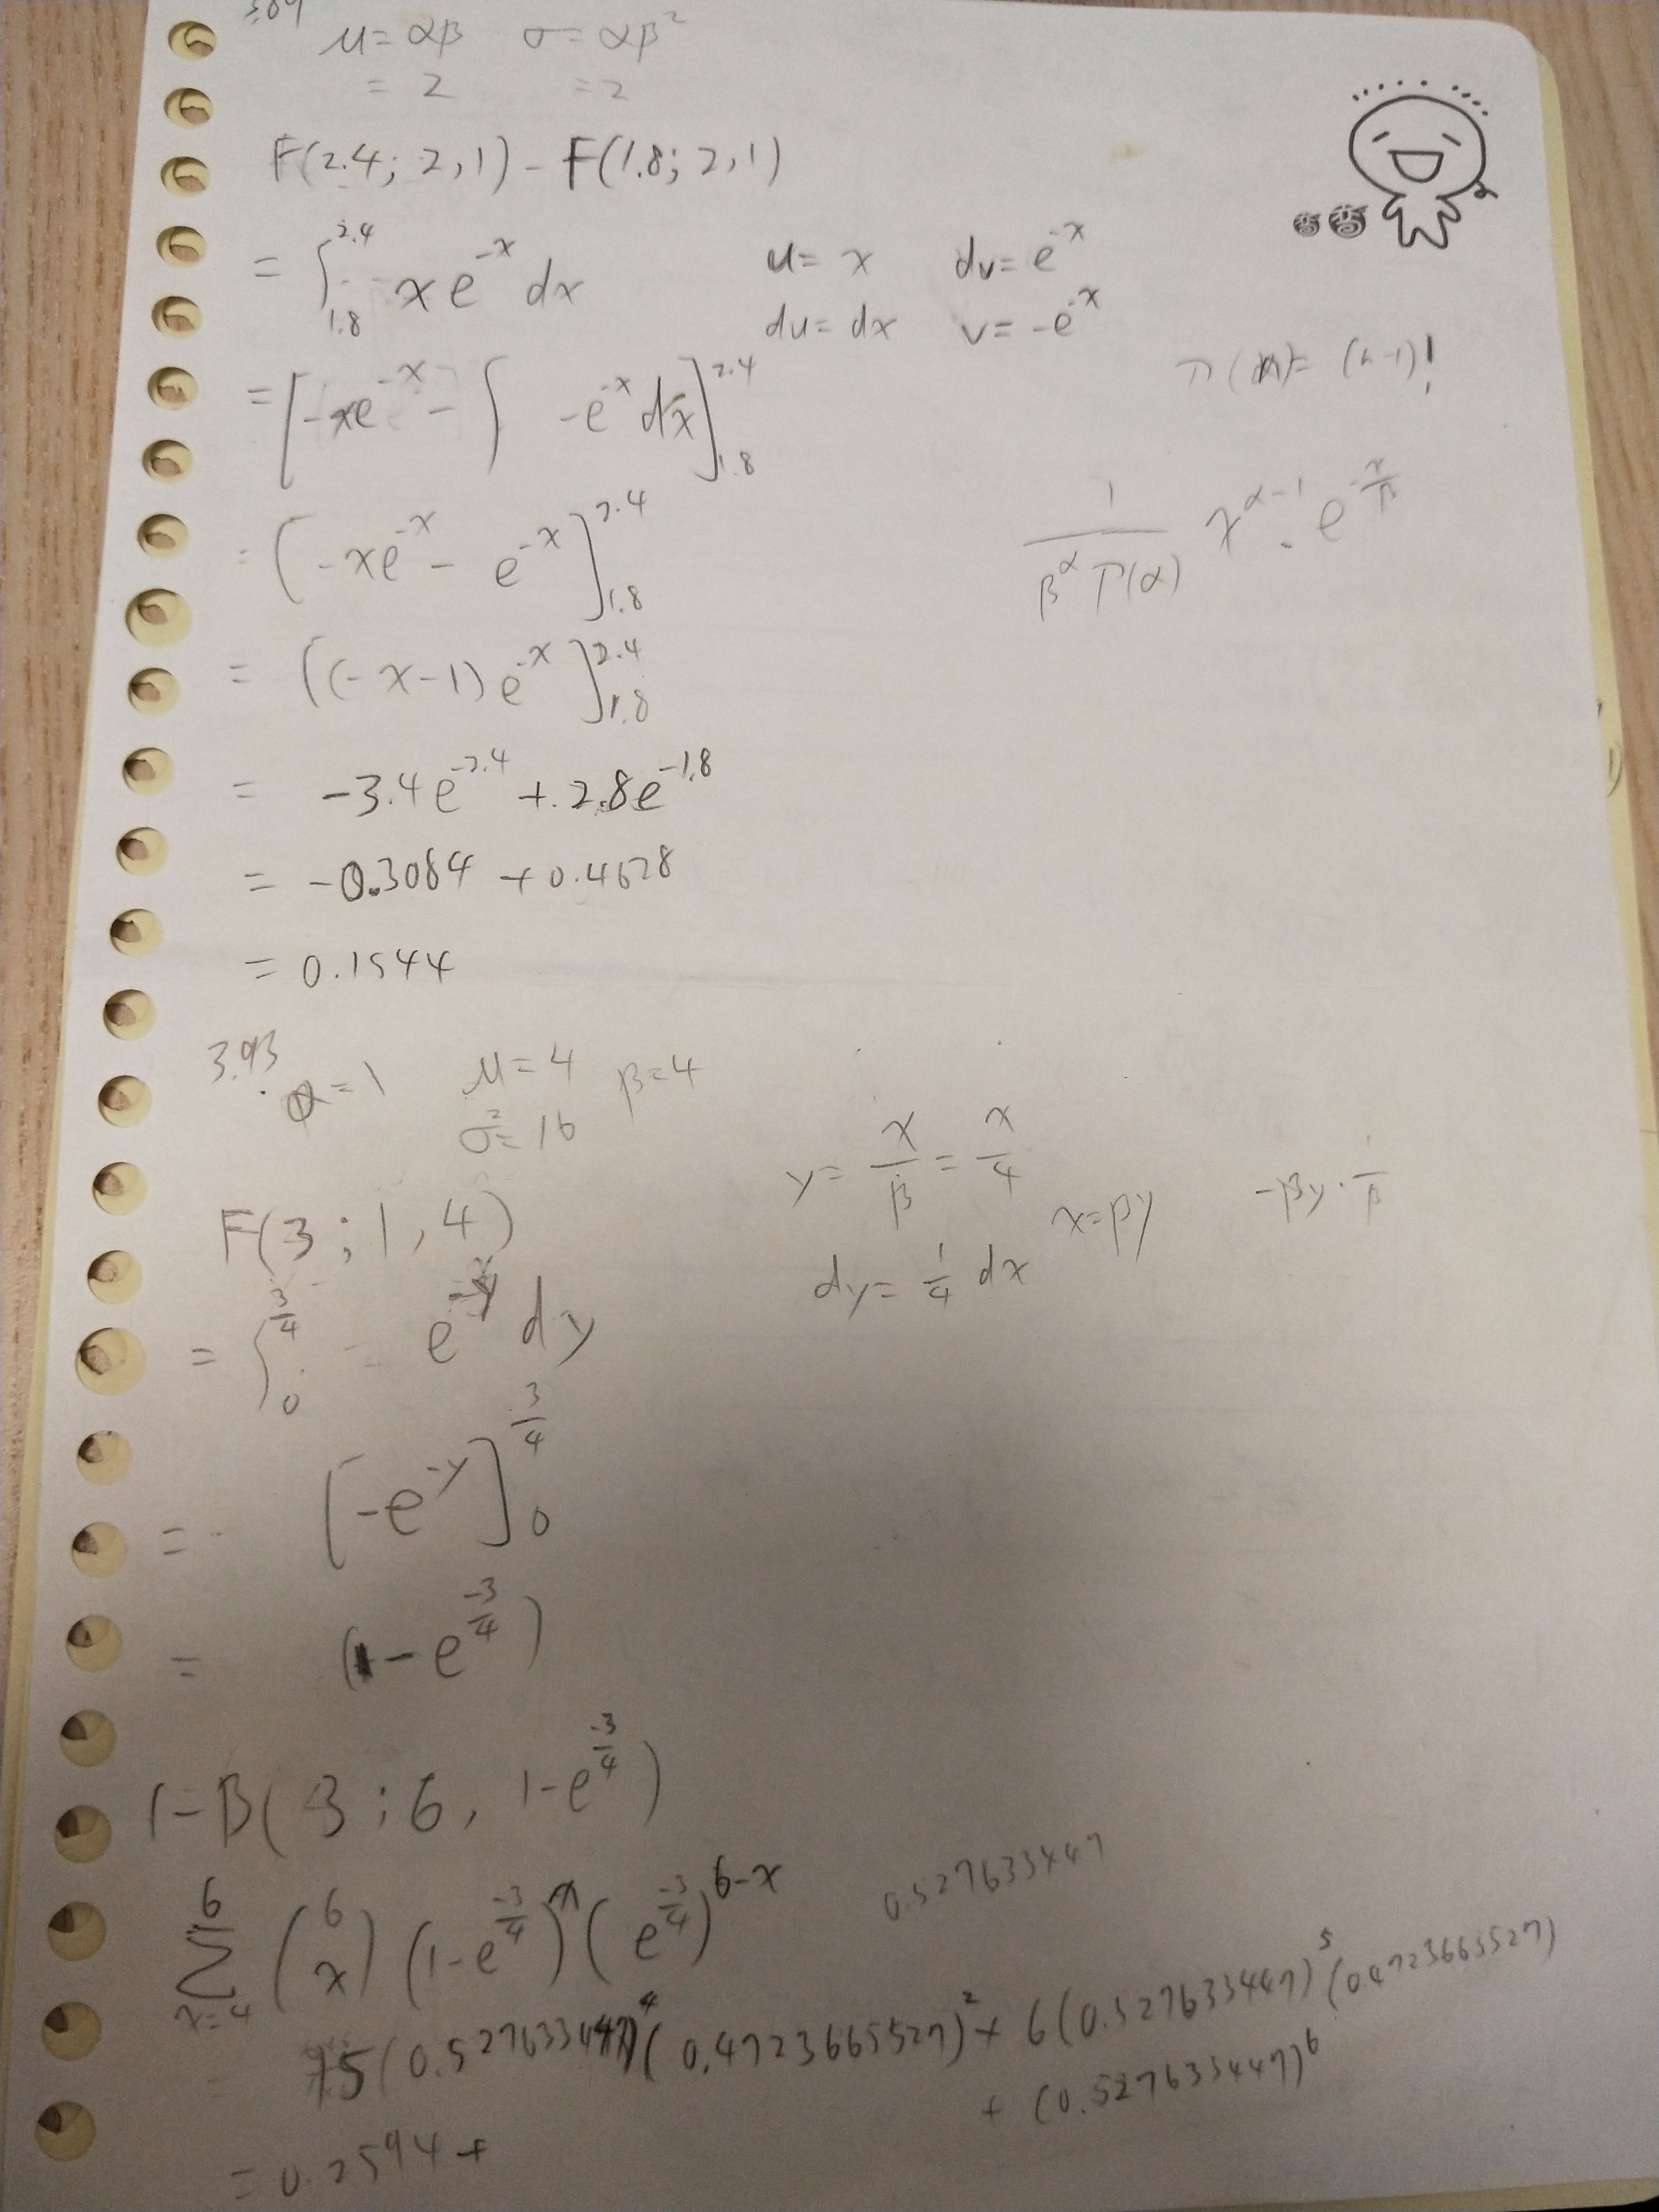 μ = αβ σ = αβ²
= 2 = 2
F(2.4; 2,1) - F(1.8; 2,1)
= ∫_{1.8}^{2.4} x e^{-x} dx u = x dv = e^{-x}
du = dx v = -e^{-x}
Γ(n) = (n-1)!
= [-xe^{-x} - ∫ -e^{-x} dx]_{1.8}^{2.4}
\frac{1}{β^α Γ(α)} x^{α-1} · e^{-\frac{x}{β}}
= [-xe^{-x} - e^{-x}]_{1.8}^{2.4}
= [(-x-1) e^{-x}]_{1.8}^{2.4}
= -3.4e^{-2.4} + 2.8e^{-1.8}
= -0.3084 + 0.4628
= 0.1544
3.93
α = 1 μ = 4 β = 4
σ² = 16
y = \frac{x}{β} = \frac{x}{4}
x = βy -βy · \frac{1}{β}
F(3; 1, 4)
dy = \frac{1}{4} dx
= ∫_0^{\frac{3}{4}} e^{-y} dy
= [-e^{-y}]_0^{\frac{3}{4}}
= (1 - e^{\frac{-3}{4}})
1 - B(3; 6, 1-e^{\frac{-3}{4}})
0.527633447
∑_{x=4}^{6} \binom{6}{x} (1-e^{\frac{-3}{4}})^x (e^{\frac{-3}{4}})^{6-x}
15(0.527633447)^4 (0.4723665527)^2 + 6(0.527633447)^5 (0.4723665527)
+ (0.527633447)^6
= 0.2594 +